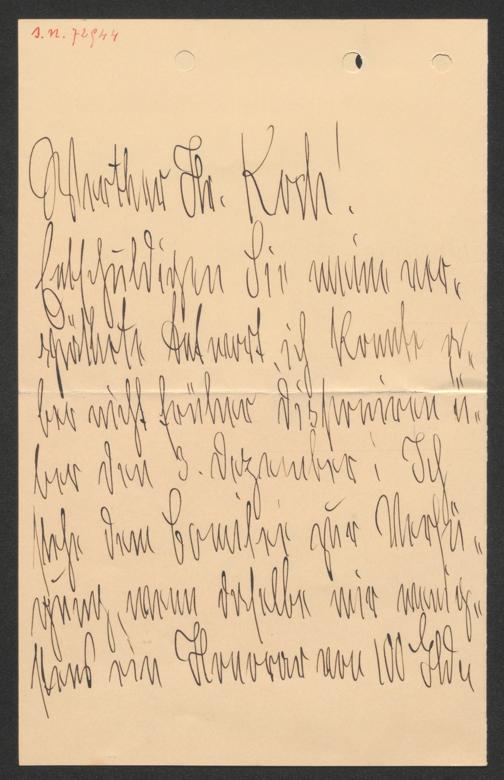 J.N. 72944
Werther Hr. Koch!
Entschuldigen Sie meine ver„
spätete Antwort, ich konnte
ber nicht früher disponiren ü„
ber den 3. Dezember! Ich
stehe dem Comitee zur Verfü„
gung, wenn daselbe mir wenig„
stens ein Honorar von 100